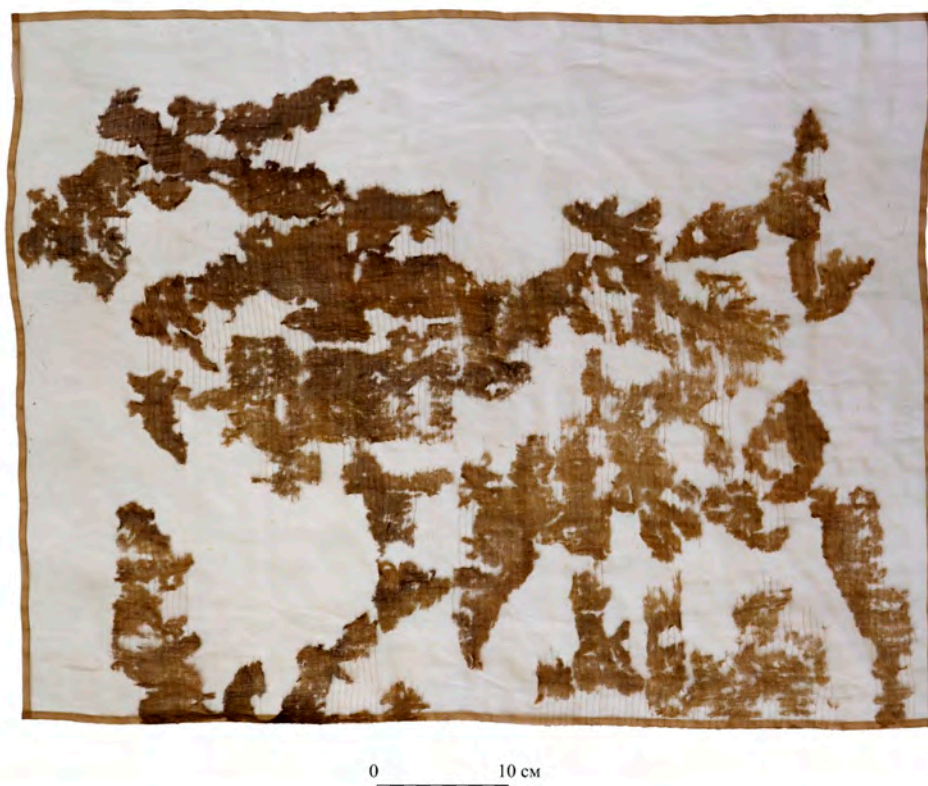 0 10 см